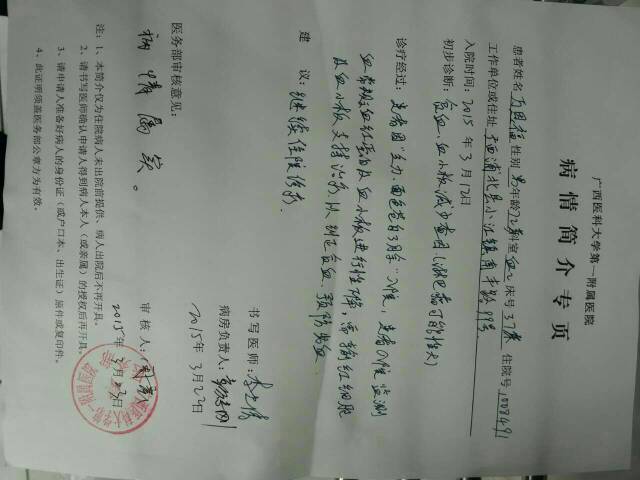 广西医科大学第一附属医院
病情简介专页
患者姓名 性别 男 年龄 72 科室 床号 37床 住院号 1008491
工作单位或住址 广西浦北县小江镇 99号
入院时间：2015年3月17日
初步诊断：贫血、血小板减少查因（淋巴瘤可能性大）
诊疗经过：患者因“乏力、面色苍白3月余”入院，患者入院监测
血常规血红蛋白及血小板进行性下降，需输红细胞
及血小板支持治疗以纠正贫血、预防出血。
建 议：继续住院治疗。
书写医师：
病房负责人：
2015年3月22日
医务部审核意见：
病情属实。
审核人：
2015年3月23日
注：1、本简介仅为住院病人未出院前提供，病人出院后不再开具。
2、请书写医师确认申请人得到病人本人（或亲属）的授权后再开具。
3、请申请人准备好病人的身份证（或户口本、出生证）原件或复印件。
4、此证明须盖医务部公章方为有效。